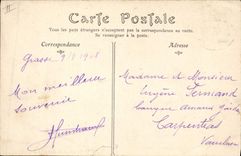 Carte Postale
Tous les pays étrangers n'acceptent pas la correspondance au verso.
Se renseigner à la poste.
Correspondance
Adresse
Grasse 9/1/1908
Mon meilleur
souvenir
Madame et Monsieur
Eugène Fernand
Carpentras
Vaucluse